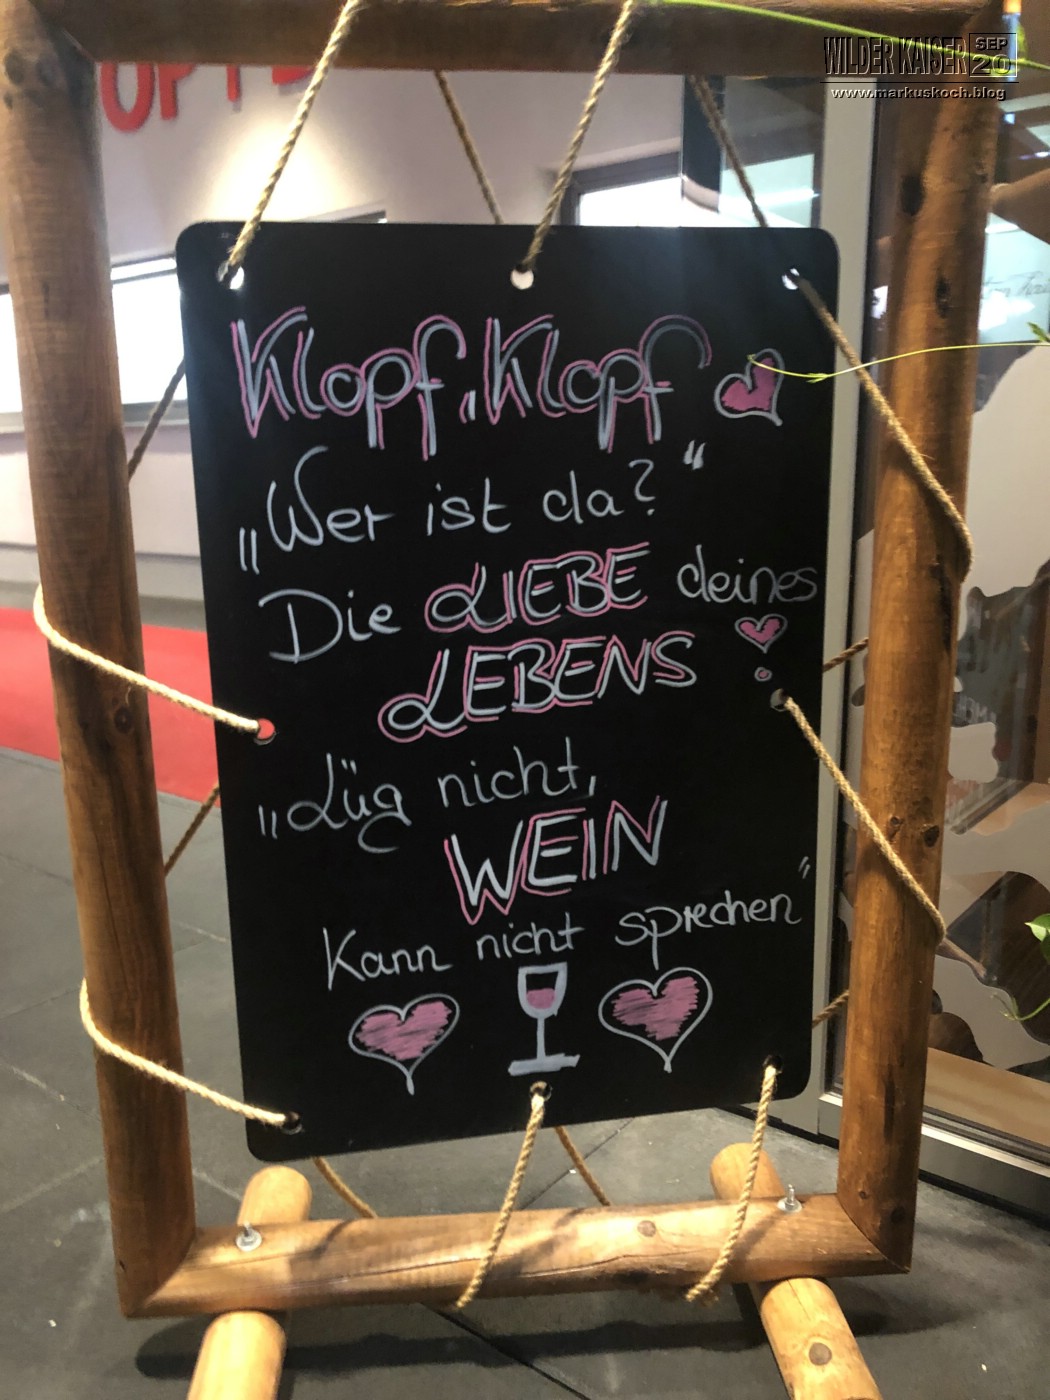 WILDER KAISER SEP 20
www.markuskoch.blog
Klopf, Klopf
„Wer ist da?“
Die LIEBE deines
LEBENS
„Lüg nicht,
WEIN
Kann nicht sprechen"